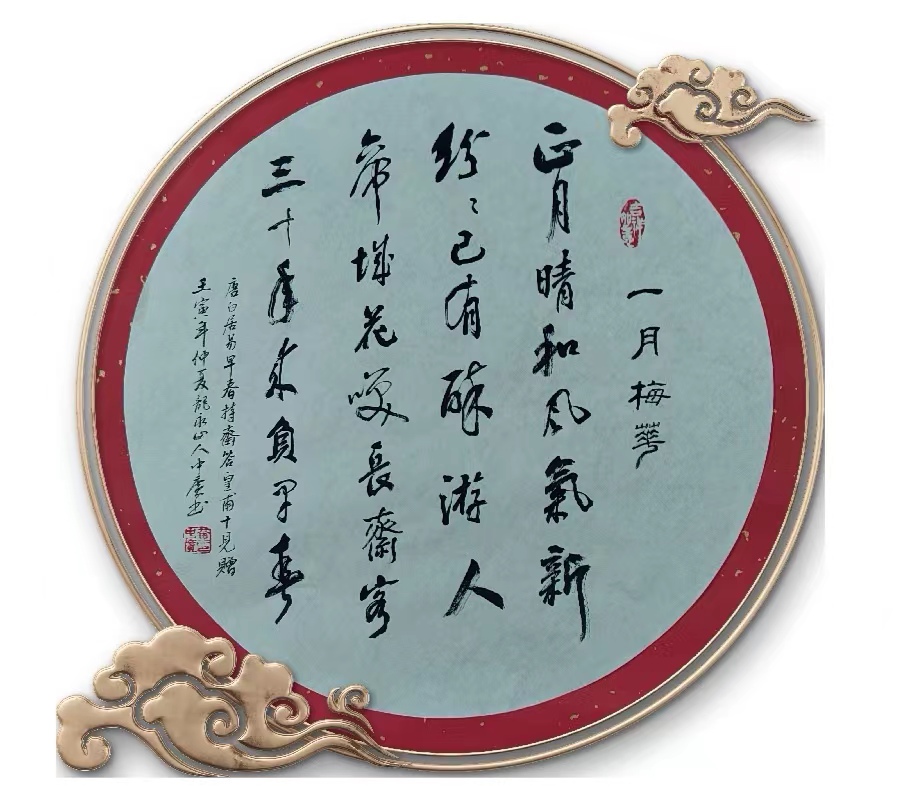 一月梅華
正月晴和风氣新
纷々已有醉游人
帝城花咲長齋客
三十年来負早春
唐白居易早春持齋答皇甫十見贈
壬寅年仲夏龍永山人中书